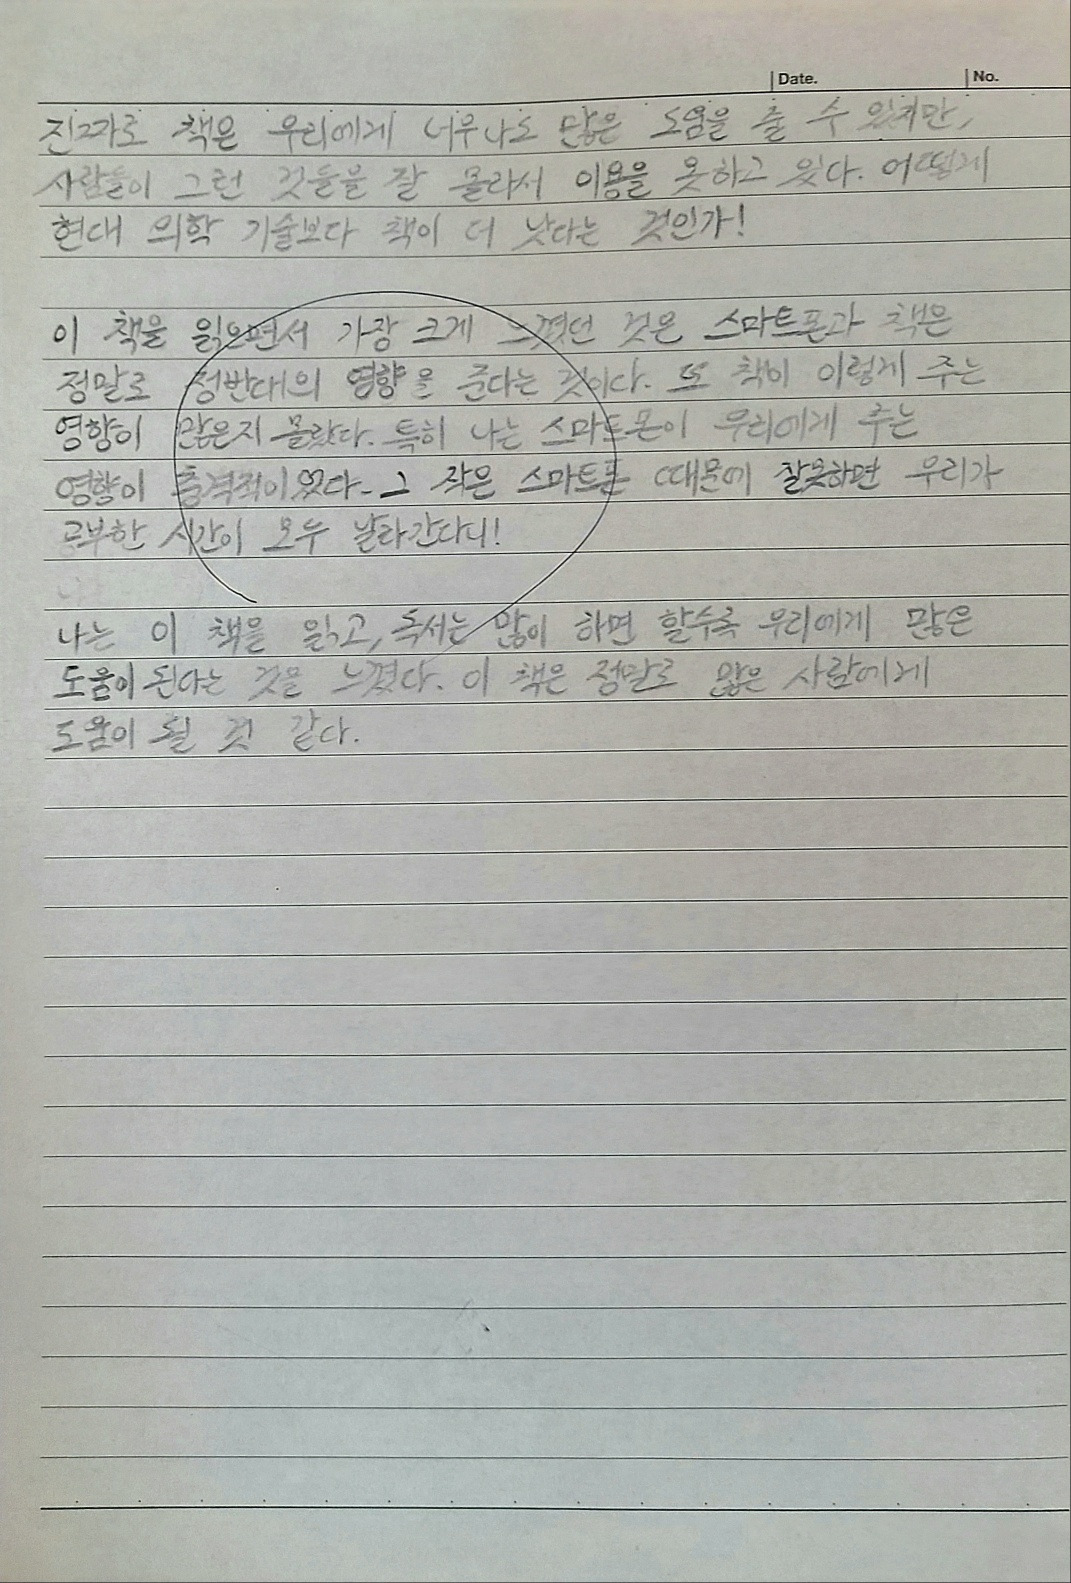 Date. No.
진짜로 책은 우리에게 너무나도 많은 도움을 줄 수 있지만,
사람들이 그런 것들을 잘 몰라서 이용을 못하고 있다. 어떻게
현대 의학 기술보다 책이 더 낫다는 것인가!
이 책을 읽으면서 가장 크게 느꼈던 것은 스마트폰과 책은
정말로 정반대의 영향을 준다는 것이다. 또 책이 이렇게 주는
영향이 많은지 몰랐다. 특히 나는 스마트폰이 우리에게 주는
영향이 충격적이었다. 그 작은 스마트폰 때문에 잘못하면 우리가
공부한 시간이 모두 날라간다니!
나는 이 책을 읽고, 독서는 많이 하면 할수록 우리에게 많은
도움이 된다는 것을 느꼈다. 이 책은 정말로 많은 사람에게
도움이 될 것 같다.